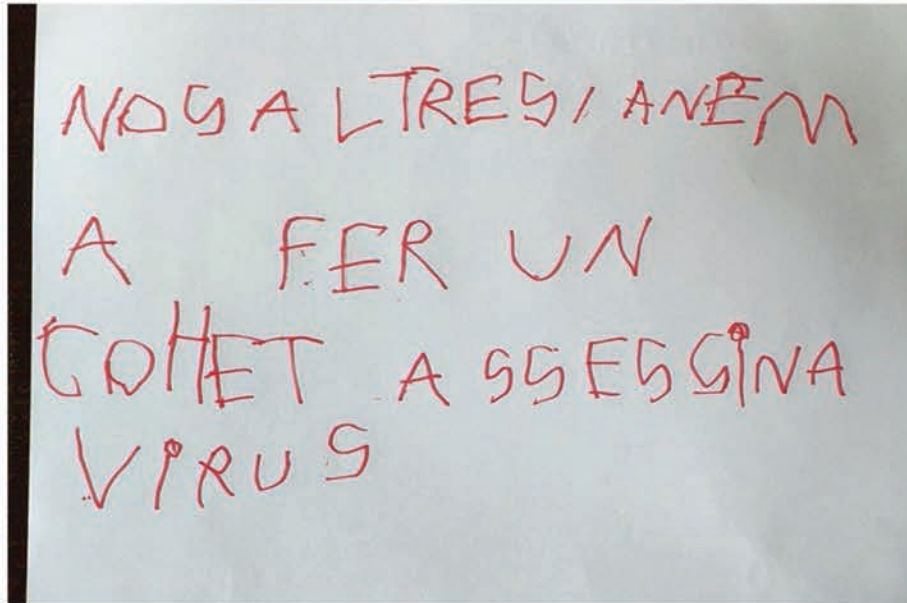 NOSALTRES, ANEM
A FER UN
COHET ASSESSINA
VIRUS